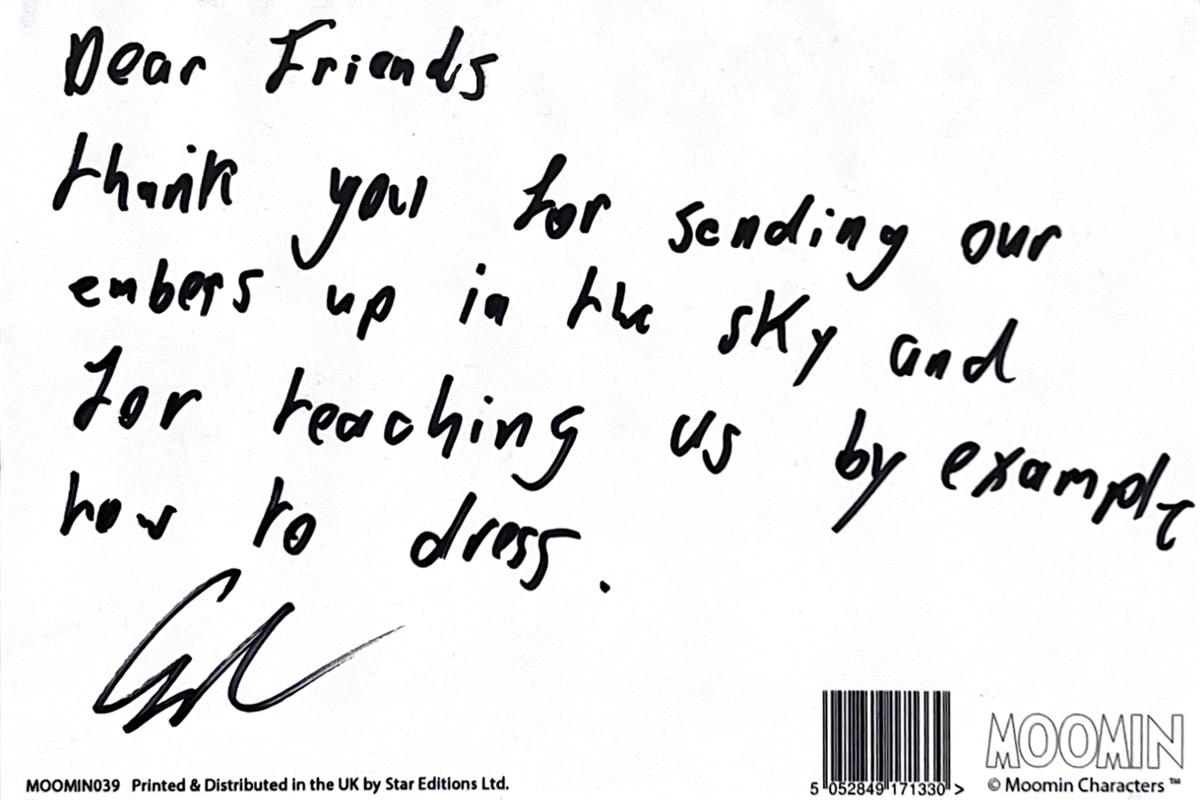 Dear Friends
thank you for sending our
embers up in the sky and
for teaching us by example
how to dress.
MOOMIN039 Printed & Distributed in the UK by Star Editions Ltd.
5 052849 171330 >
MOOMIN
© Moomin Characters ™